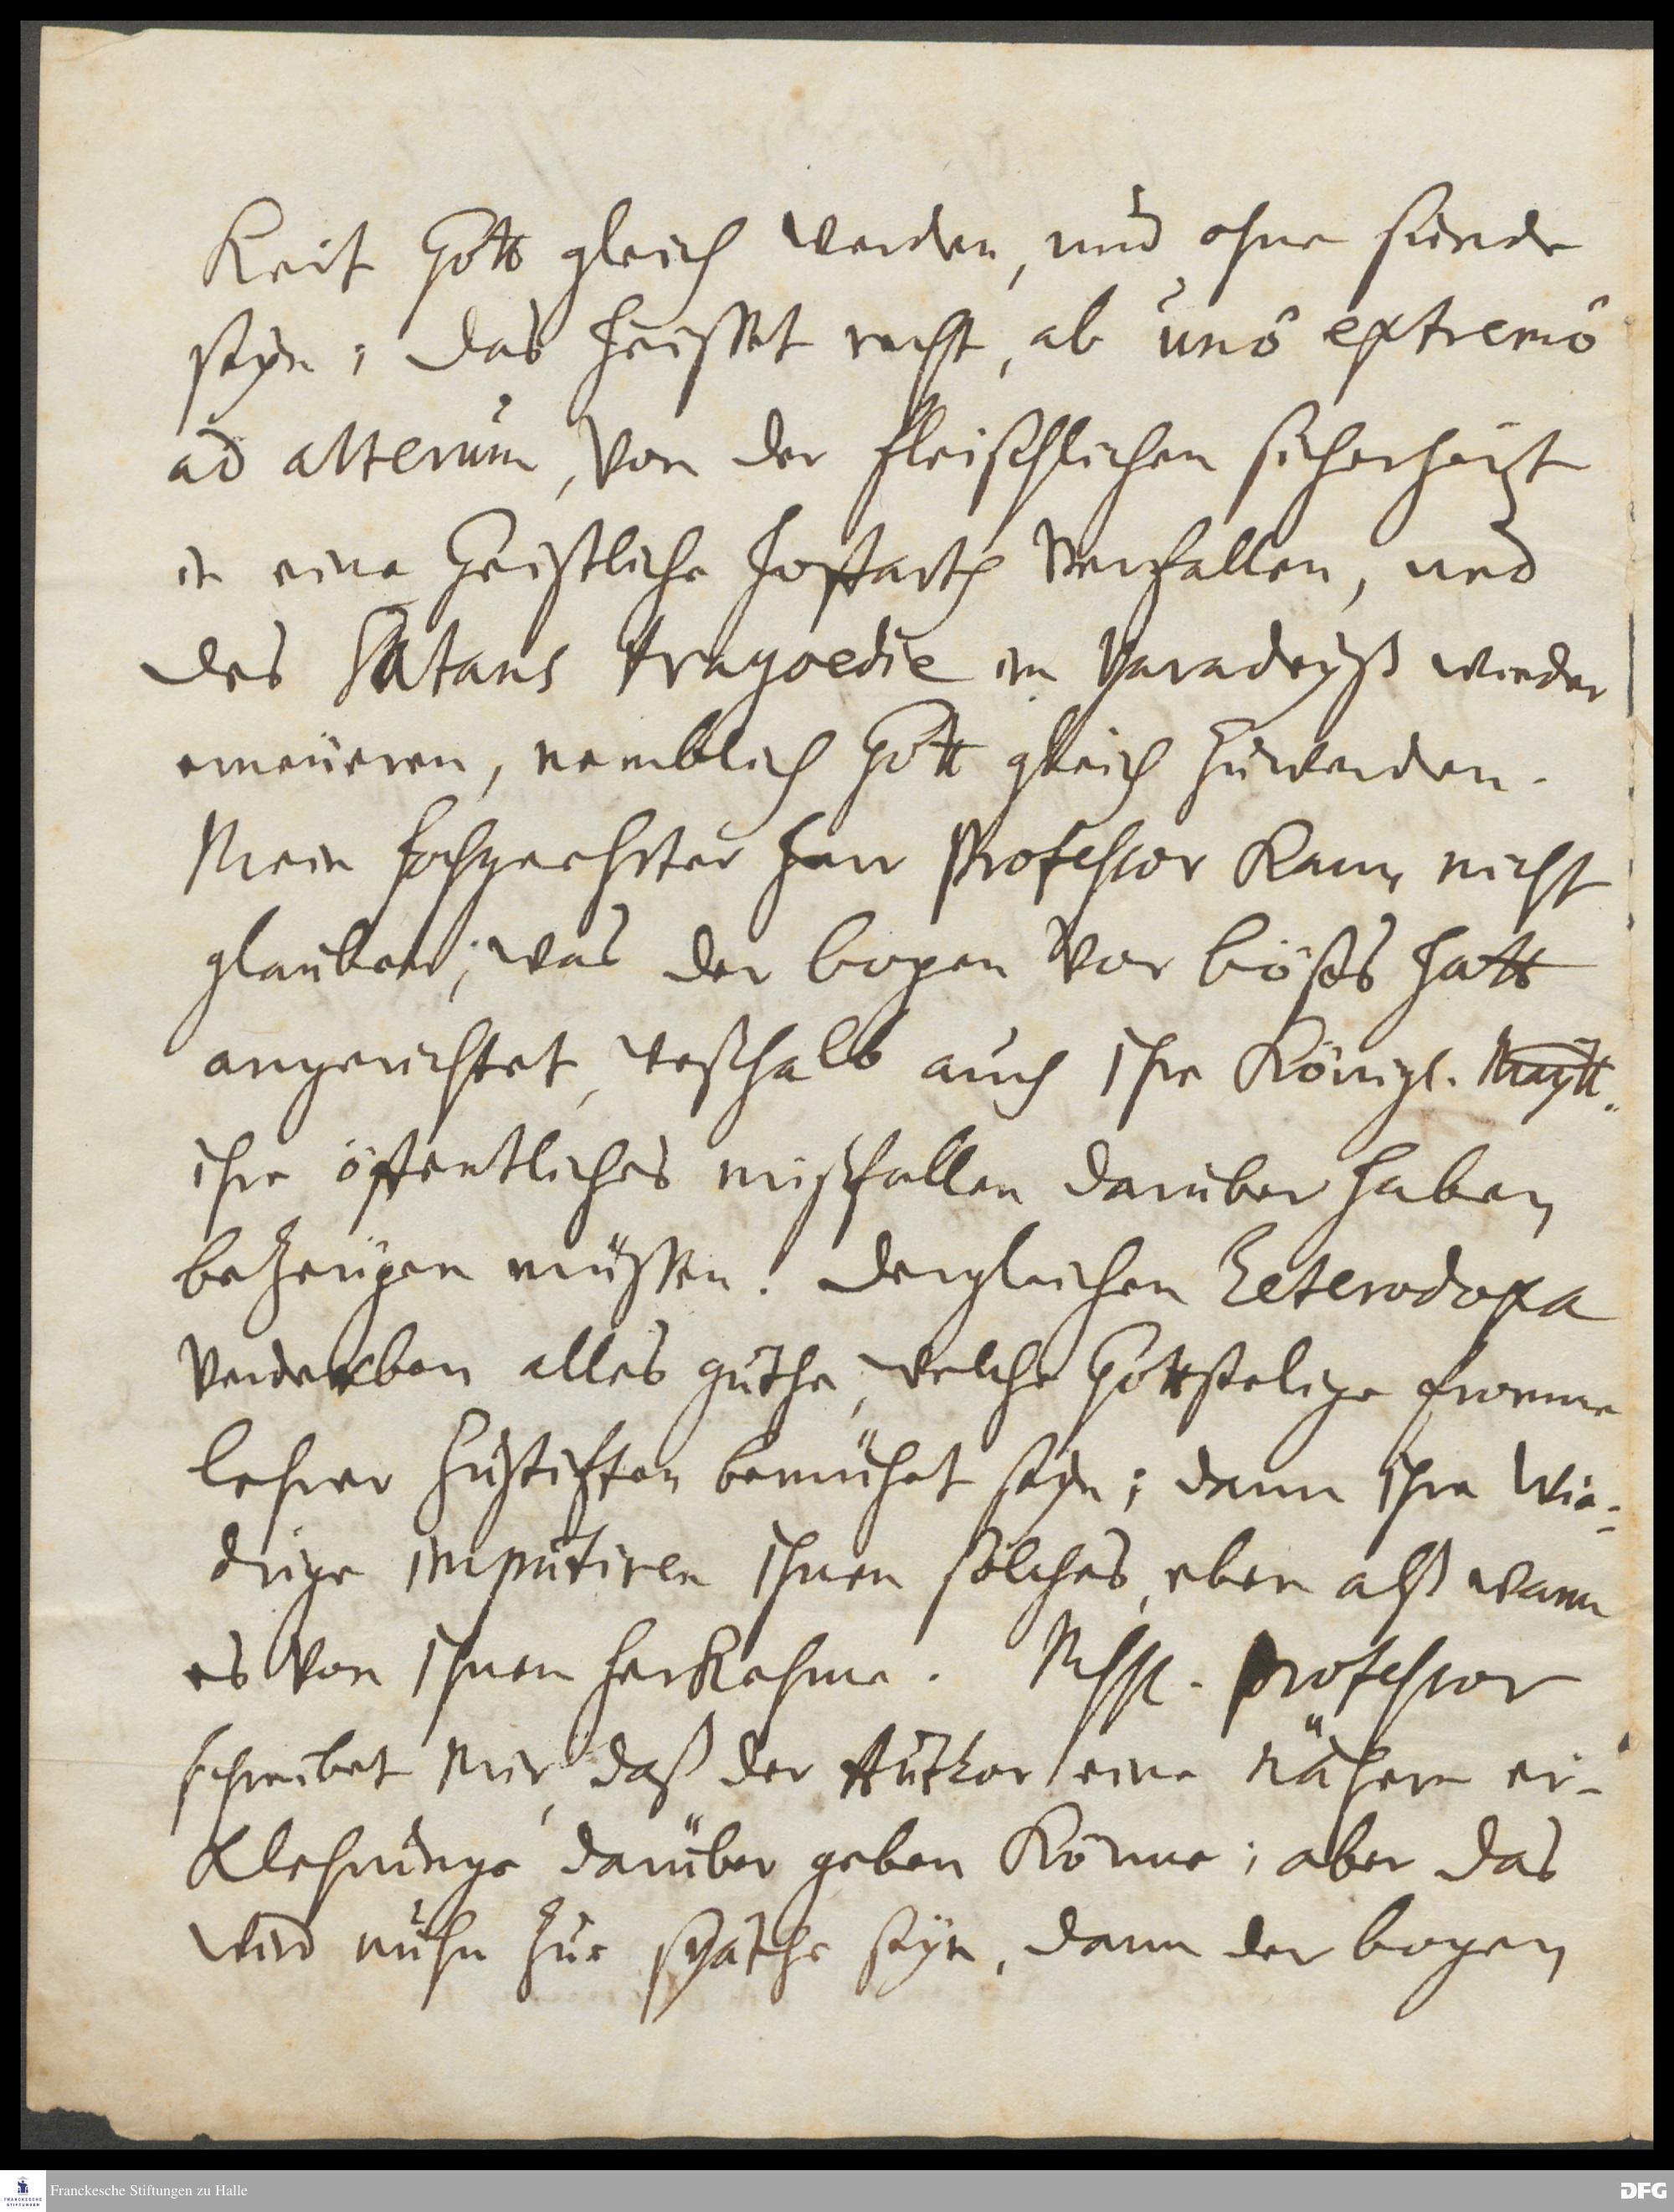 Keit Gott gleich werden, und ohne sünde
seyn; das heisset recht, ab unô extremô
ad alterum, von der fleischlichen sicherheit
in eine Geistliche hoffarth verfallen, und
des Satans tragoedie im Paradeyß wieder
erneüeren, nemblich Gott gleich zuwerden.
Mein hochgeehrter Herr Professor kann nicht
glauben, was der bogen vor böses hatt
angerichtet, weßhalb auch Ihre Königl. Maytt.
ihre öffentliches mißfallen darüber haben
bezeügen müssen. dergleichen heterodoxa
verderben alles guthe, welche Gottselige fromme
lehrer zustiften bemühet seyn; dann ihre wie-
drige imputiren ihnen solches, eben alß wann
es von ihnen herkehme. Professor
schreibet mir, daß der Author eine nähere er-
klehrunge darüber geben könne; aber das
wird nuhn zue späthe seyn, dann der bogen
Franckesche Stiftungen zu Halle
FRANCKESCHE STIFTUNGEN
DFG